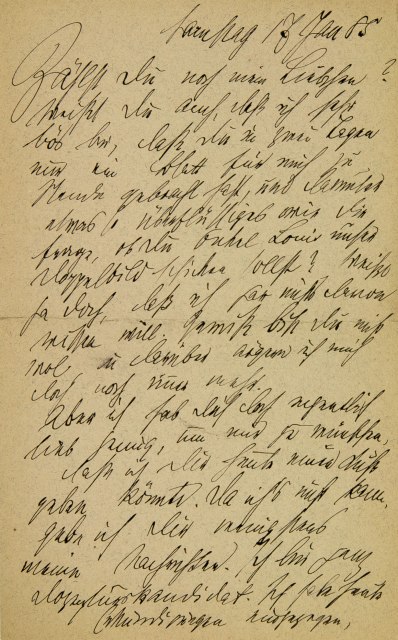 Samstag 17 Jan 85
Zählst Du noch mein Liebchen?
Weißt Du auch, daß ich sehr
bös bin, daß Du in zwei Tagen
nur ein Blatt für mich zu
Stande gebracht hast, und darunter
etwas so überflüssiges wie die
Frage, ob Du Onkel Louis unser
Doppelbild schicken sollst? Weißt
ja doch, daß ich gar nichts davon
wissen will. Gewiß bist Du nicht
wol, u darüber ärgere ich mich
doch noch mehr.
Aber ich hab Dich doch eigentlich
lieb genug, um mir zu wünschen,
daß ich Dir heute einen Kuß
geben könnte. Da ichs nicht kann,
gebe ich Dir wenigstens
meine Nachrichten. Ich bin ganz
kandidat. Ich sehe heute
entgegen,